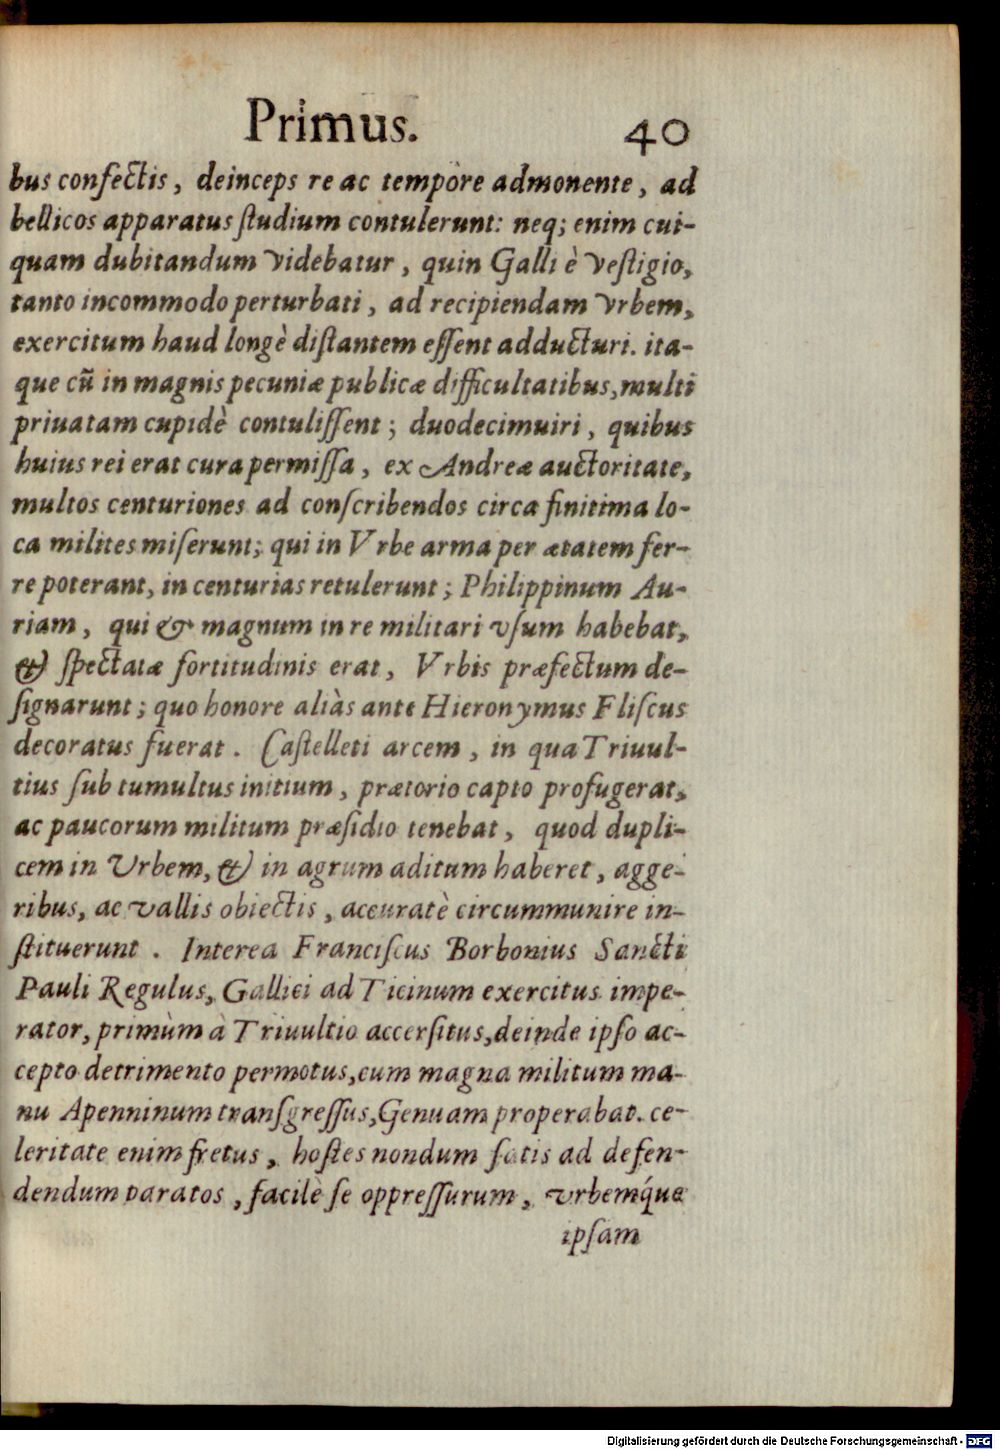 Primus. 40
bus confectis, deinceps re ac tempòre admonente, ad
bellicos apparatus ſtudium contulerunt: neq; enim cui-
quam dubitandum videbatur, quin Galli è veſtigio,
tanto incommodo perturbati, ad recipiendam vrbem,
exercitum haud longè diſtantem eſſent adducturi. ita-
que cū in magnis pecuniæ publicæ difficultatibus, multi
priuatam cupidè contuliſſent; duodecimuiri, quibus
huius rei erat cura permiſſa, ex Andreæ auctoritate,
multos centuriones ad conſcribendos circa finitima lo-
ca milites miſerunt; qui in Vrbe arma per ætatem fer-
re poterant, in centurias retulerunt; Philippinum Au-
riam, qui & magnum in re militari vſum habebat,
& ſpectatæ fortitudinis erat, Vrbis præfectum de-
ſignarunt; quo honore aliàs ante Hieronymus Fliſcus
decoratus fuerat. Caſtelleti arcem, in qua Triuul-
tius ſub tumultus initium, prætorio capto profugerat,
ac paucorum militum præſidio tenebat, quod dupli-
cem in Vrbem, & in agrum aditum haberet, agge-
ribus, ac vallis obiectis, accuratè circummunire in-
ſtituerunt. Interea Franciſcus Borbonius Sancti
Pauli Regulus, Gallici ad Ticinum exercitus impe-
rator, primùm à Triuultio accerſitus, deinde ipſo ac-
cepto detrimento permotus, cum magna militum ma-
nu Apenninum tranſgreſſus, Genuam properabat. ce-
leritate enim fretus, hoſtes nondum ſatis ad defen-
dendum paratos, facilè ſe oppreſſurum, vrbemq́ue
ipſam
Digitalisierung gefördert durch die Deutsche Forschungsgemeinschaft - DFG